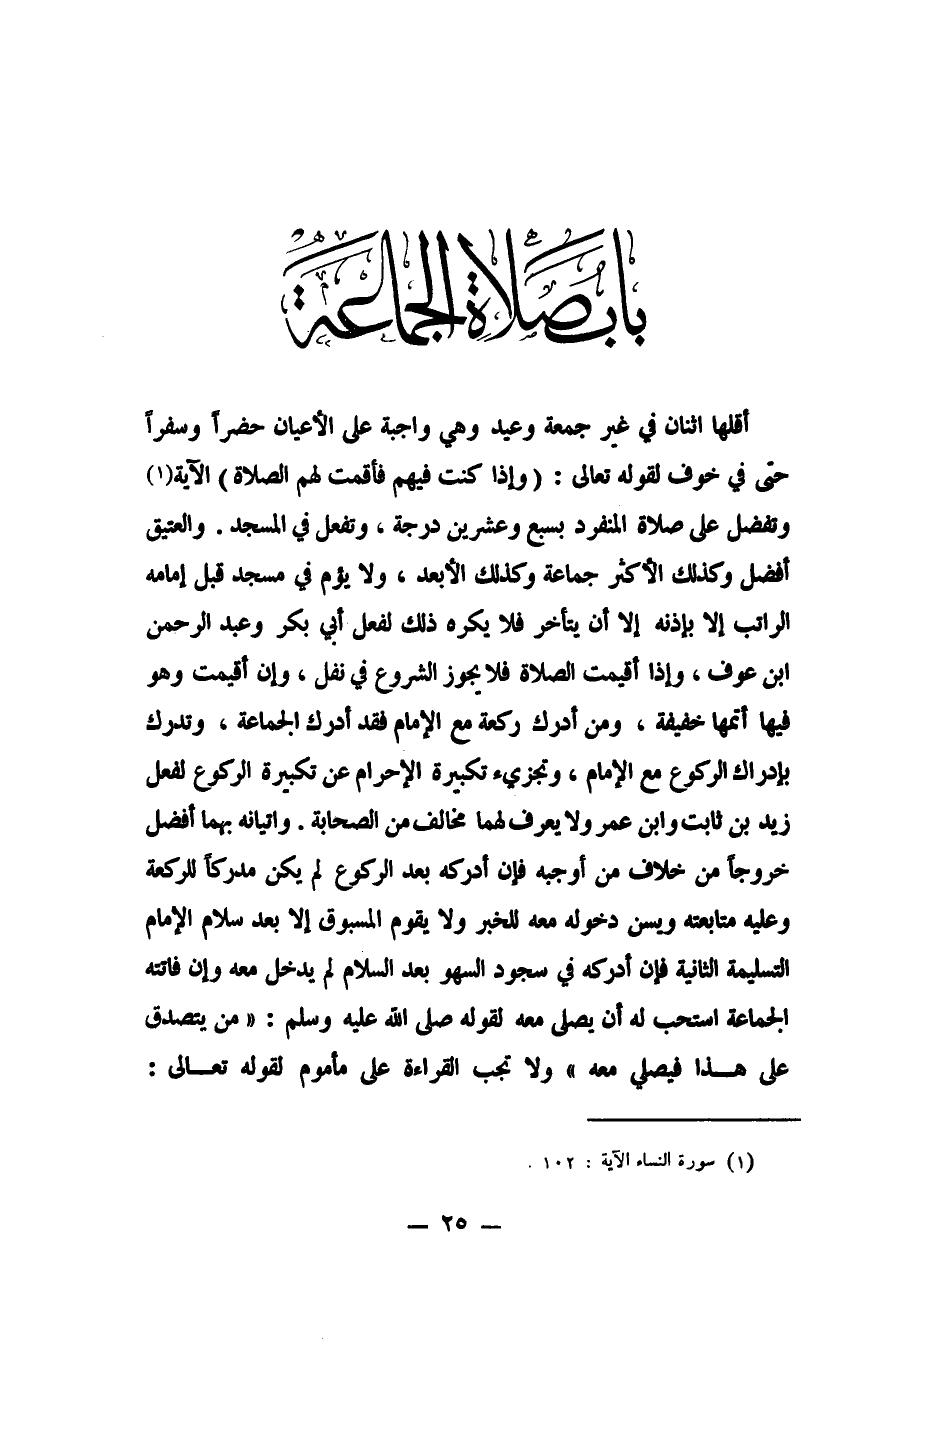 باب صلاة الجماعة
أقلها اثنان في غير جمعة وعيد وهي واجبة على الأعيان حضراً وسفراً
حتى في خوف لقوله تعالى : ( وإذا كنت فيهم فأقمت لهم الصلاة ) الآية(١)
وتفضل على صلاة المنفرد بسبع وعشرين درجة ، وتفعل في المسجد . والعتيق
أفضل وكذلك الأكثر جماعة وكذلك الأبعد ، ولا يؤم في مسجد قبل إمامه
الراتب إلا بإذنه إلا أن يتأخر فلا يكره ذلك لفعل أبي بكر وعبد الرحمن
ابن عوف ، وإذا أقيمت الصلاة فلا يجوز الشروع في نفل ، وإن أقيمت وهو
فيها أتمها خفيفة ، ومن أدرك ركعة مع الإمام فقد أدرك الجماعة ، وتدرك
بإدراك الركوع مع الإمام ، وتجزيء تكبيرة الإحرام عن تكبيرة الركوع لفعل
زيد بن ثابت وابن عمر ولا يعرف لهما مخالف من الصحابة . واتيانه بهما أفضل
خروجاً من خلاف من أوجبه فإن أدركه بعد الركوع لم يكن مدركاً للركعة
وعليه متابعته ويسن دخوله معه للخبر ولا يقوم المسبوق إلا بعد سلام الإمام
التسليمة الثانية فإن أدركه في سجود السهو بعد السلام لم يدخل معه وإن فاتته
الجماعة استحب له أن يصلى معه لقوله صلى الله عليه وسلم : « من يتصدق
على هــذا فيصلي معه » ولا تجب القراءة على مأموم لقوله تعــالى :
(١) سورة النساء الآية : ١٠٢ .
— ٢٥ —